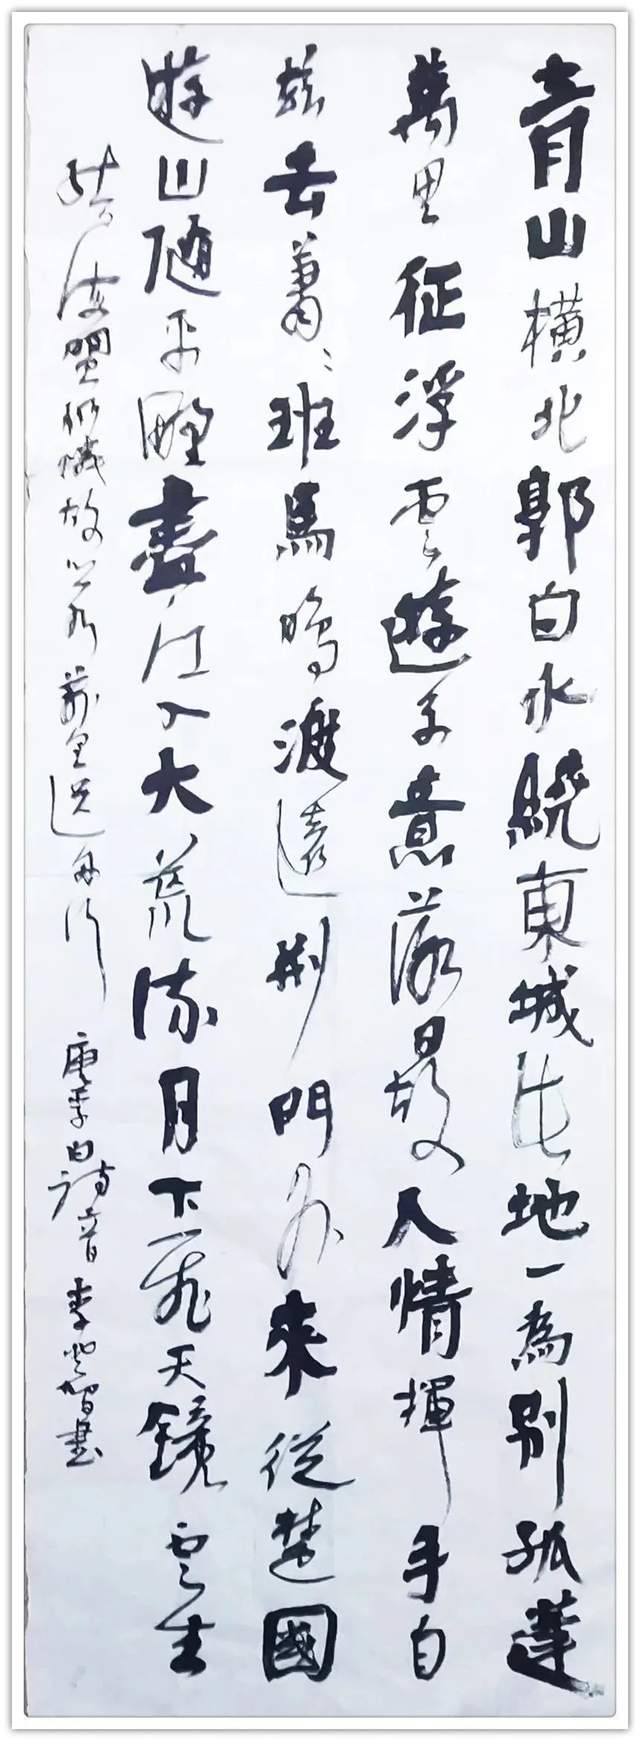 青山橫北郭白水繞東城此地一為別孤蓬
萬里征浮雲遊子意落日故人情揮手自
茲去蕭〻班馬鳴渡遠荊門外來從楚國
遊山隨平野盡江入大荒流月下飛天鏡雲生
結海仍憐故鄉水萬里送舟行
唐李白詩 李登智書